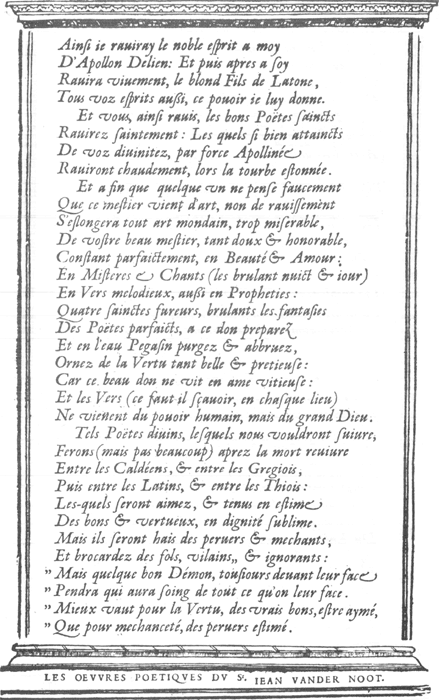 Ainſi ie rauiray le noble eſprit a moy
D'Apollon Delien: Et puis apres a ſoy
Rauira viuement, le blond Fils de Latone,
Tous voz eſprits auſsi, ce pouoir ie luy donne.
Et vous, ainſi rauis, les bons Poëtes ſaincts
Rauirez ſaintement: Les quels ſi bien attaincts
De voz diuinitez, par force Apollinée
Rauiront chaudement, lors la tourbe eſtonnée.
Et a fin que quelque vn ne penſe faucement
Que ce meſtier vient d'art, non de rauiſſemēt
S'eſlongera tout art mondain, trop miſerable,
De voſtre beau meſtier, tant doux & honorable,
Conſtant parfaictement, en Beauté & Amour;
En Miſteres & Chants (les brulant nuict & iour)
En Vers melodieux, auſsi en Propheties:
Quatre ſainctes fureurs, brulants les fantaſies
Des Poëtes parfaicts, a ce don preparez
Et en l'eau Pegaſin purgez & abbruez,
Ornez de la Vertu tant belle & pretieuſe:
Car ce beau don ne vit en ame vitieuſe:
Et les Vers (ce faut il ſçauoir, en chaſque lieu)
Ne vienent du pouoir humain, mais du grand Dieu.
Tels Poëtes diuins, leſquels nous vouldront ſuiure,
Ferons (mais pas beaucoup) aprez la mort reuiure
Entre les Caldéens, & entre les Gregiois,
Puis entre les Latins, & entre les Thiois:
Les-quels ſeront aimez, & tenus en eſtime
Des bons & vertueux, en dignité ſublime.
Mais ils ſeront hais des peruers & mechants,
Et brocardez des fols, vilains,, & ignorants:
" Mais quelque bon Démon, touſiours deuant leur face
" Pendra qui aura ſoing de tout ce qu'on leur face.
" Mieux vaut pour la Vertu, des vrais bons, eſtre aymé,
" Que pour mechanceté, des peruers eſtimé.
LES OEVVRES POETIQVES DV Sr. IEAN VANDER NOOT.